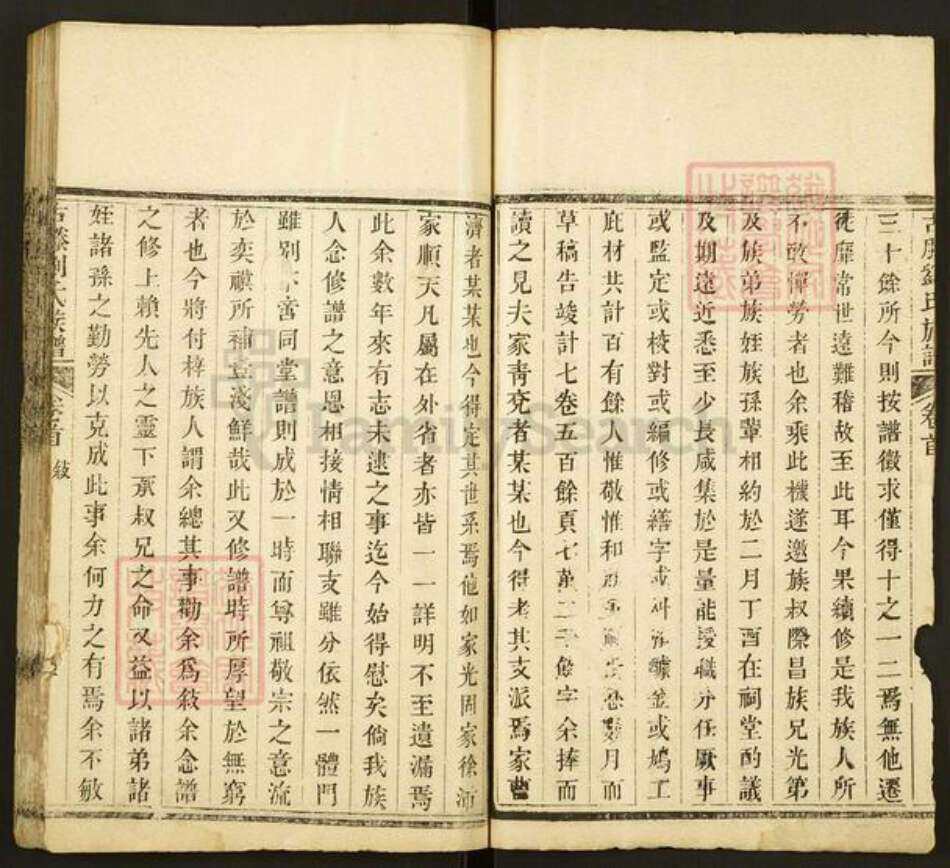 古滕劉氏族譜 卷首
三十餘所今則按譜徵求僅得十之一二焉無他遷
徙靡常世遠難稽故至此耳今果續修是我族人所
不敢憚勞者也余乘此機遂邀族叔際昌族兄光第
及族弟族姪族孫輩相約於二月丁酉在祠堂酌議
及期遠近悉至少長咸集於是量能授職分任厥事
或監定或校對或編修或繕字或 或鳩工
庇材共計百有餘人惟敬惟和 月而
草稿告竣計七卷五百餘頁七萬二千餘字余捧而
讀之見夫家青兗者某某也今得考其支派焉家曹
濟者某某也今得定其世系焉他如家光固家徐沛
家順天凡屬在外省者亦皆一一詳明不至遺漏焉
此余數年來有志未逮之事迄今始得慰矣倘我族
人念修譜之意恩相接情相聯支雖分依然一體門
雖別不啻同堂譜則成於一時而尊祖敬宗之意流
於奕禩所補豈淺鮮哉此又修譜時所厚望於無窮
者也今將付梓族人謂余總其事勸余為敍余念譜
之修上賴先人之靈下承叔兄之命又益以諸弟諸
姪諸孫之勤勞以克成此事余何力之有焉余不敏
古滕劉氏族譜 卷首 敍
FamilySearch